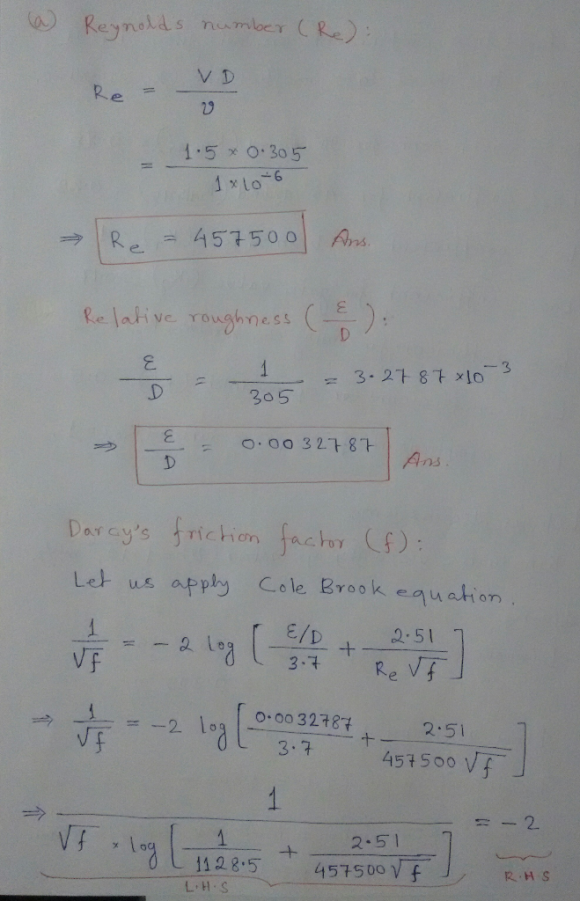 (a) Reynolds number (Re):
Re = VD / ν
= 1.5 × 0.305 / 1×10⁻⁶
⇒ Re = 457500 Ans.
Relative roughness (ε/D):
ε/D = 1/305 = 3.2787 ×10⁻³
⇒ ε/D = 0.0032787 Ans.
Darcy's friction factor (f):
Let us apply Cole Brook equation.
1/√f = -2 log [ (ε/D)/3.7 + 2.51/(Re √f) ]
⇒ 1/√f = -2 log [ 0.0032787/3.7 + 2.51/(457500 √f) ]
⇒ 1 / (√f × log [ 1/1128.5 + 2.51/(457500√f) ]) = -2
L.H.S R.H.S